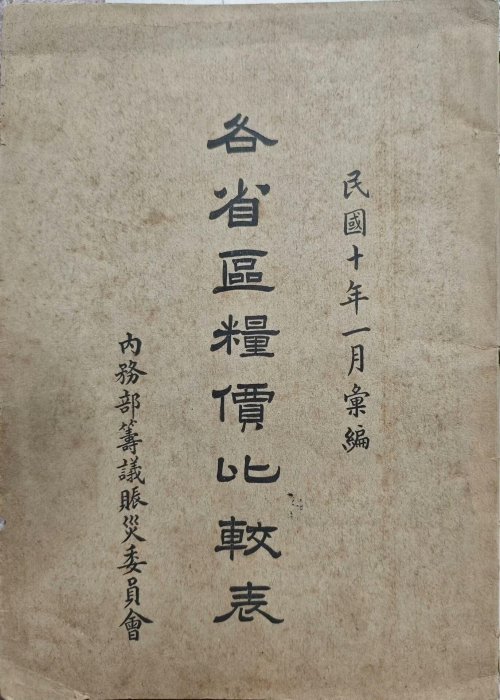 民國十年一月彙編
各省區糧價比較表
內務部籌議賑災委員會